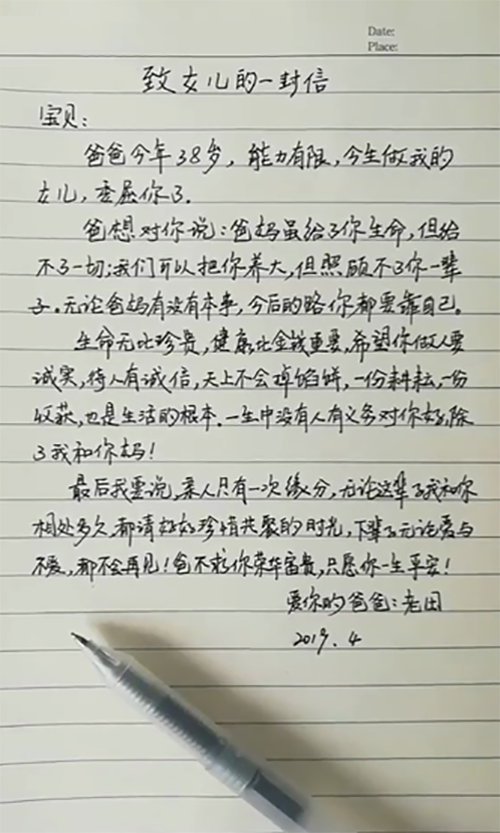 Date:
Place:
致女儿的一封信
宝贝：
爸爸今年38岁，能力有限，今生做我的
女儿，委屈你了．
爸想对你说：爸妈虽给了你生命，但给
不了一切；我们可以把你养大，但照顾不了你一辈
子．无论爸妈有没有本事，今后的路你都要靠自己．
生命无比珍贵，健康比金钱重要，希望你做人要
诚实，待人有诚信，天上不会掉馅饼，一份耕耘，一份
收获，也是生活的根本．一生中没有人有义务对你好，除
了我和你妈！
最后我要说，亲人只有一次缘分，无论这辈子我和你
相处多久，都请好好珍惜共聚的时光，下辈子无论爱与
不爱，都不会再见！爸不求你荣华富贵，只愿你一生平安！
爱你的爸爸：老田
2019．4